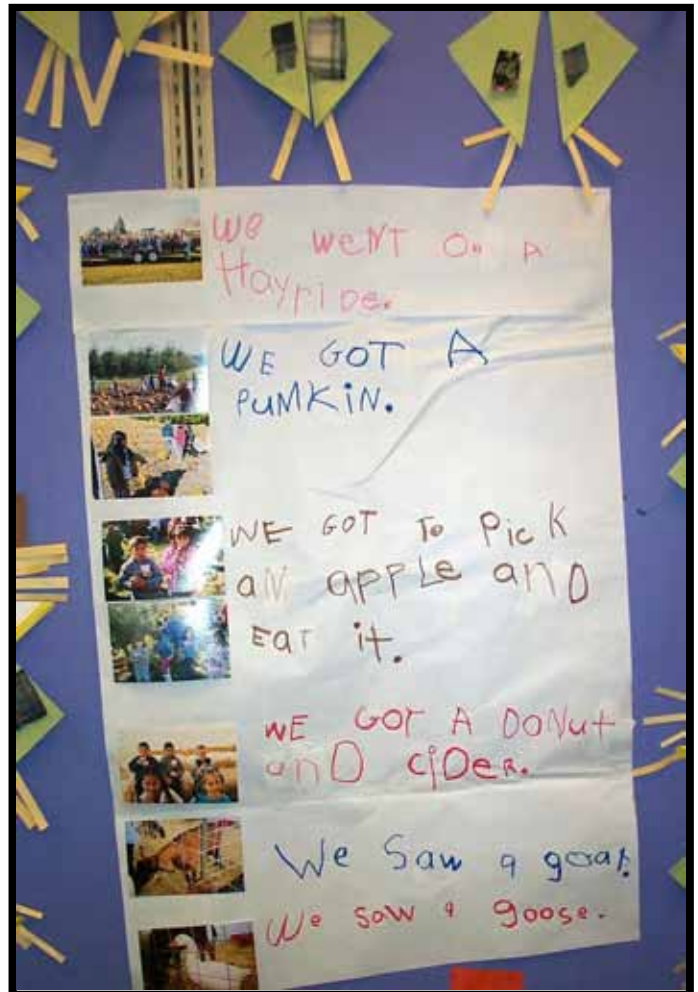 WE WeNT On A
HayriDe.
WE GOT A
PUMKiN.
WE GOT To Pick
aN apple anD
EaT it.
WE GOT A DONut
anD ciDer.
We Saw a goat.
We saw a goose.